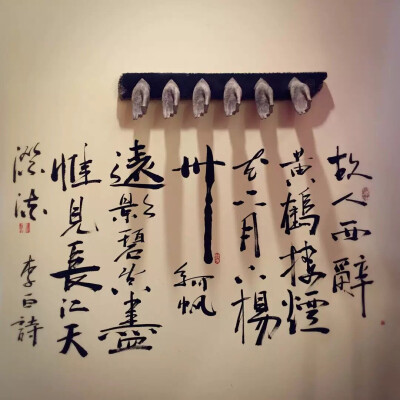 故人西辭
黃鶴樓煙
花三月下楊
州
孤帆
遠影碧空盡
惟見長江天
際流
李白詩